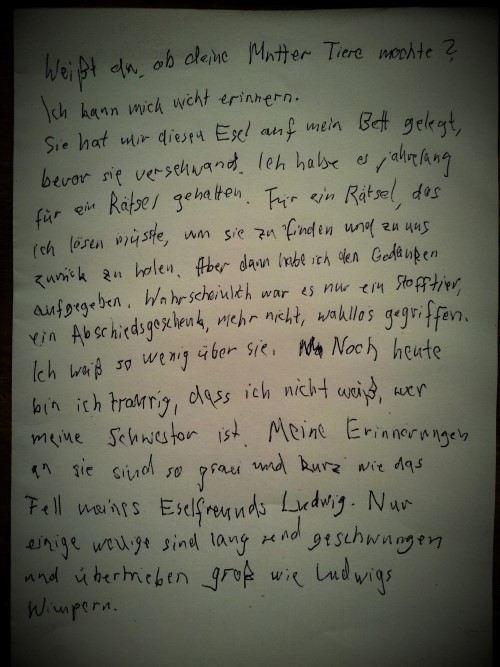 Weißt du, ob deine Mutter Tiere mochte?
Ich kann mich nicht erinnern.
Sie hat mir diesen Esel auf mein Bett gelegt,
bevor sie verschwand. Ich habe es jahrelang
für ein Rätsel gehalten. Für ein Rätsel, das
ich lösen müsste, um sie zu finden und zu uns
zurück zu holen. Aber dann habe ich den Gedanken
aufgegeben. Wahrscheinlich war es nur ein Stofftier,
ein Abschiedsgeschenk, mehr nicht, wahllos gegriffen.
Ich weiß so wenig über sie. Noch heute
bin ich traurig, dass ich nicht weiß, wer
meine Schwester ist. Meine Erinnerungen
an sie sind so grau und kurz wie das
Fell meines Eselfreunds Ludwig. Nur
einige wenige sind lang und geschwungen
und übertrieben groß wie Ludwigs
Wimpern.